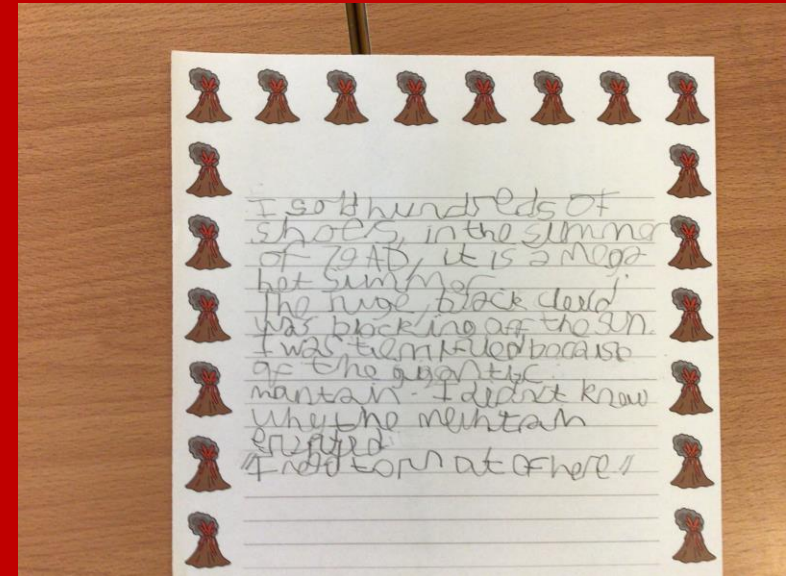 I sold hundreds of
shoes, in the summer
of 79 AD, it is a mega
hot summer.
The huge, black cloud
was blocking off the sun.
I was terrified because
of the gigantic
mantain. I didn't know
why the meintain
erupted.
"I need to run out of here"